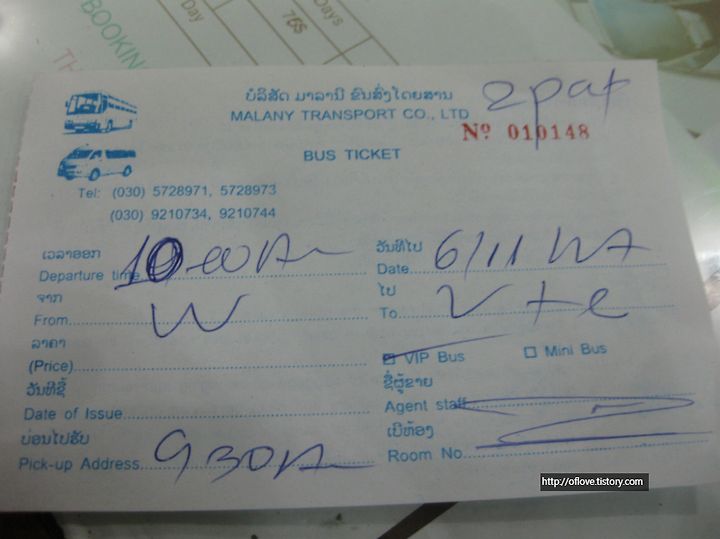 BOOKIN
Day
765
Days
TH
ບໍລິສັດ ມາລານີ ຂົນສົ່ງໂດຍສານ
2 pax
MALANY TRANSPORT CO., LTD
Nº 010148
BUS TICKET
Tel: (030) 5728971, 5728973
(030) 9210734, 9210744
ເວລາອອກ ວັນທີໄປ
Departure time 10 00 Am Date 6/11
ຈາກ ໄປ
From V To Vte
ລາຄາ
(Price) VIP Bus Mini Bus
ວັນທີຊື້ ຊື່ຜູ້ຂາຍ
Date of Issue Agent staff
ບ່ອນໄປຮັບ ເບີຫ້ອງ
Pick-up Address 930 Am Room No
http://oflove.tistory.com